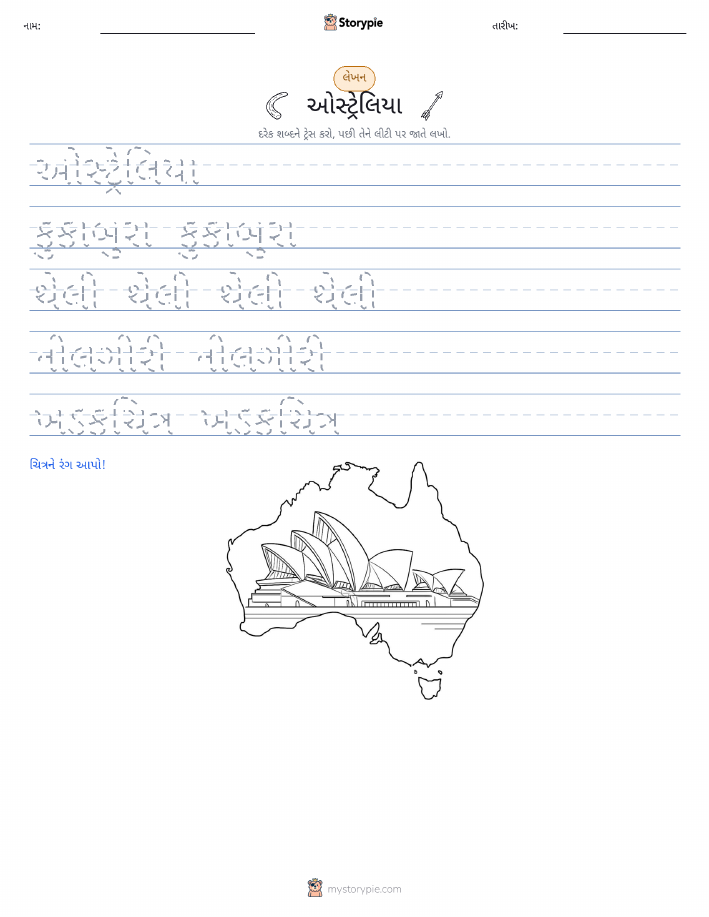 નામ: Storypie તારીખ:
લેખન
ઓસ્ટ્રેલિયા
દરેક શબ્દને ટ્રેસ કરો, પછી તેને લીટી પર જાતે લખો.
ઓસ્ટ્રેલિયા
કુકાબુરા કુકાબુરા
થેલી થેલી થેલી થેલી
નીલગીરી નીલગીરી
ખડકચિત્ર ખડકચિત્ર
ચિત્રને રંગ આપો!
mystorypie.com